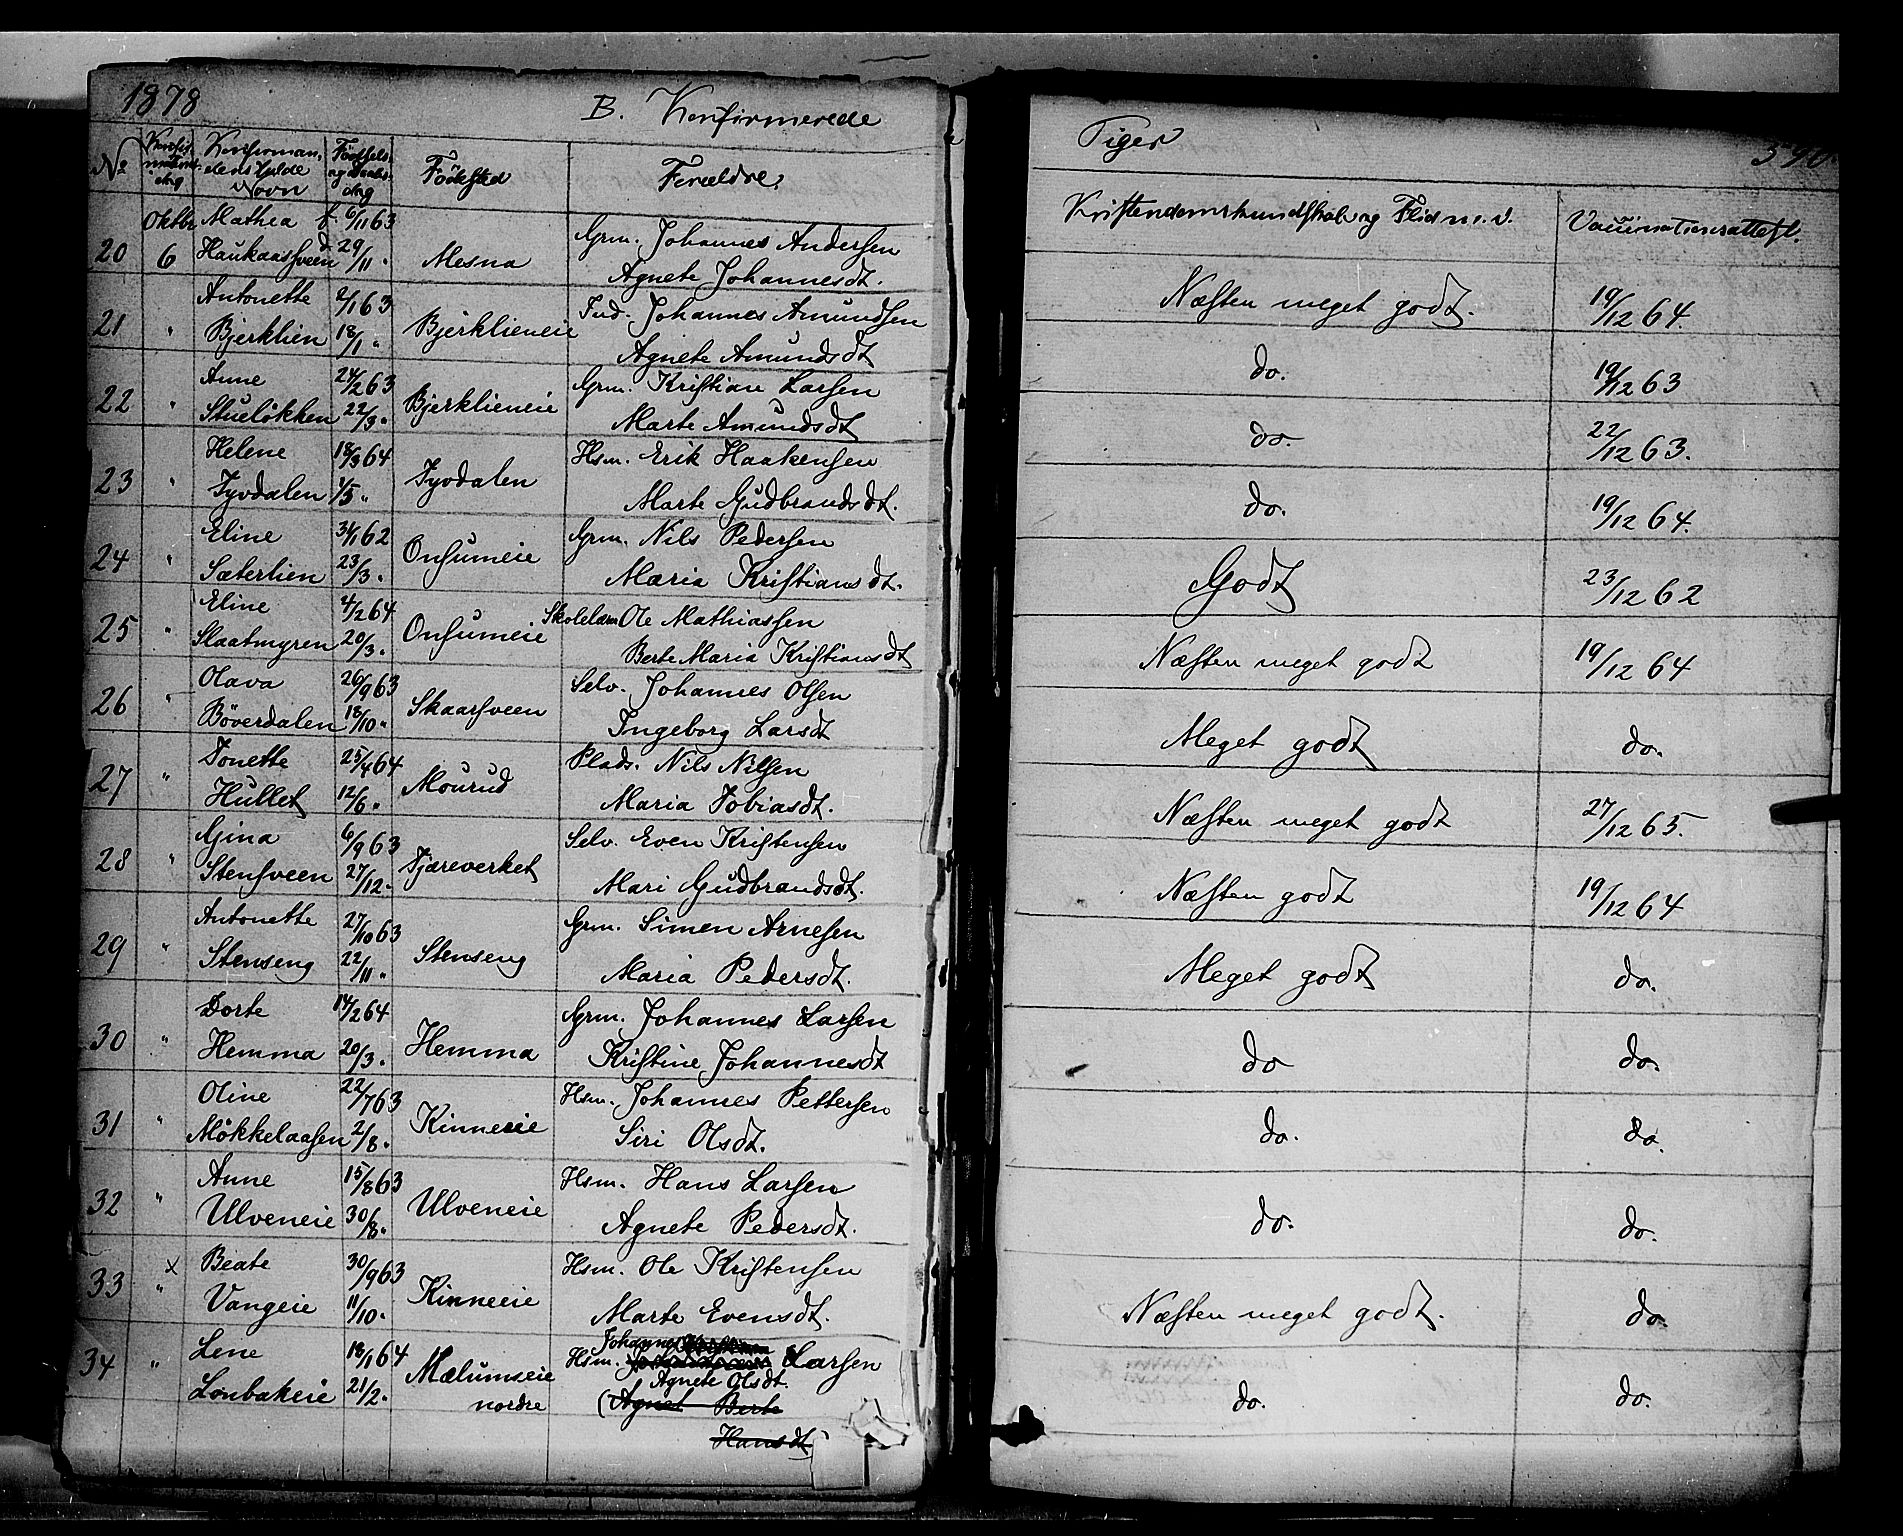 1878
B. Konfirmerede
No Konfirmations dag Konfirmandens fulde Navn Fødsels og Daabs dag Födested Forældre
20 Oktbr 6 Mathea f. 6/11 63 Mesna Grm. Johannes Andersen
Haukaassveen d. 29/11. Agnete Johannesdt.
21 " Antonette 2/1 63 Bjerklieneie Ind. Johannes Amundsen
Bjerklien 18/1 " Agnete Amundsdt
22 " Anne 24/2 63 Bjerklieneie Grm. Kristian Larsen
Stuelökken 22/3. Marte Amundsdt
23 " Helene 18/3 64 Tyvdalen Hsm. Erik Haakensen
Tyvdalen 1/5 " Marte Gudbrandsdt.
24 " Eline 31/1 62 Onsumeie Grm. Nils Pedersen
Sæterlien 23/3. Maria Kristiansdt.
25 " Eline 4/2 64 Onsumeie Skolelær. Ole Mathiassen
Slaatmyren 20/3. Berte Maria Kristiansdt
26 " Olava 26/9 63 Skaarsveen Selv. Johannes Olsen
Böverdalen 18/10. Ingeborg Larsdt
27 " Tonette 25/4 64 Mourud Plads. Nils Nilsen
Hullet 12/6. Maria Tobiasdt.
28 " Gina 6/9 63 Tjæreverket Selv. Even Kristensen
Stensveen 27/12. Mari Gudbrandsdt.
29 " Antonette 27/10 63 Stenseng Grm. Simen Arnesen
Stenseng 22/11 " Maria Pedersdt.
30 " Dorte 14/2 64 Hemma Grm. Johannes Larsen
Hemma 20/3. Kristine Johannesdt
31 " Oline 22/7 63 Kinneeie Hsm. Johannes Pettersen
Mökkelaasen 2/8. Siri Olsdt.
32 " Anne 15/8 63 Ulveneie Hsm. Hans Larsen
Ulveneie 30/8. Agnete Pedersdt.
33 " x Beate 30/9 63 Kinneeie Hsm. Ole Kristensen
Vangeie 11/10. Marte Evensdt.
34 " Lene 18/1 64 Mælumseie Johannes
Hsm. Larsen
Lonbakeie 21/2. nordre Agnete Olsdt.
(Agnet Berte
Hansdt)
Piger
390.
Kristendomskundskab og Flid m. v. Vaccinationsattest.
Næsten meget godt. 19/12 64.
do. 19/12 63
do. 22/12 63.
do. 19/12 64.
Godt 23/12 62
Næsten meget godt 19/12 64
Meget godt do.
Næsten meget godt 27/12 65.
Næsten godt 19/12 64
Meget godt do.
do do.
do. do.
do. do.
Næsten meget godt. do.
do. do.